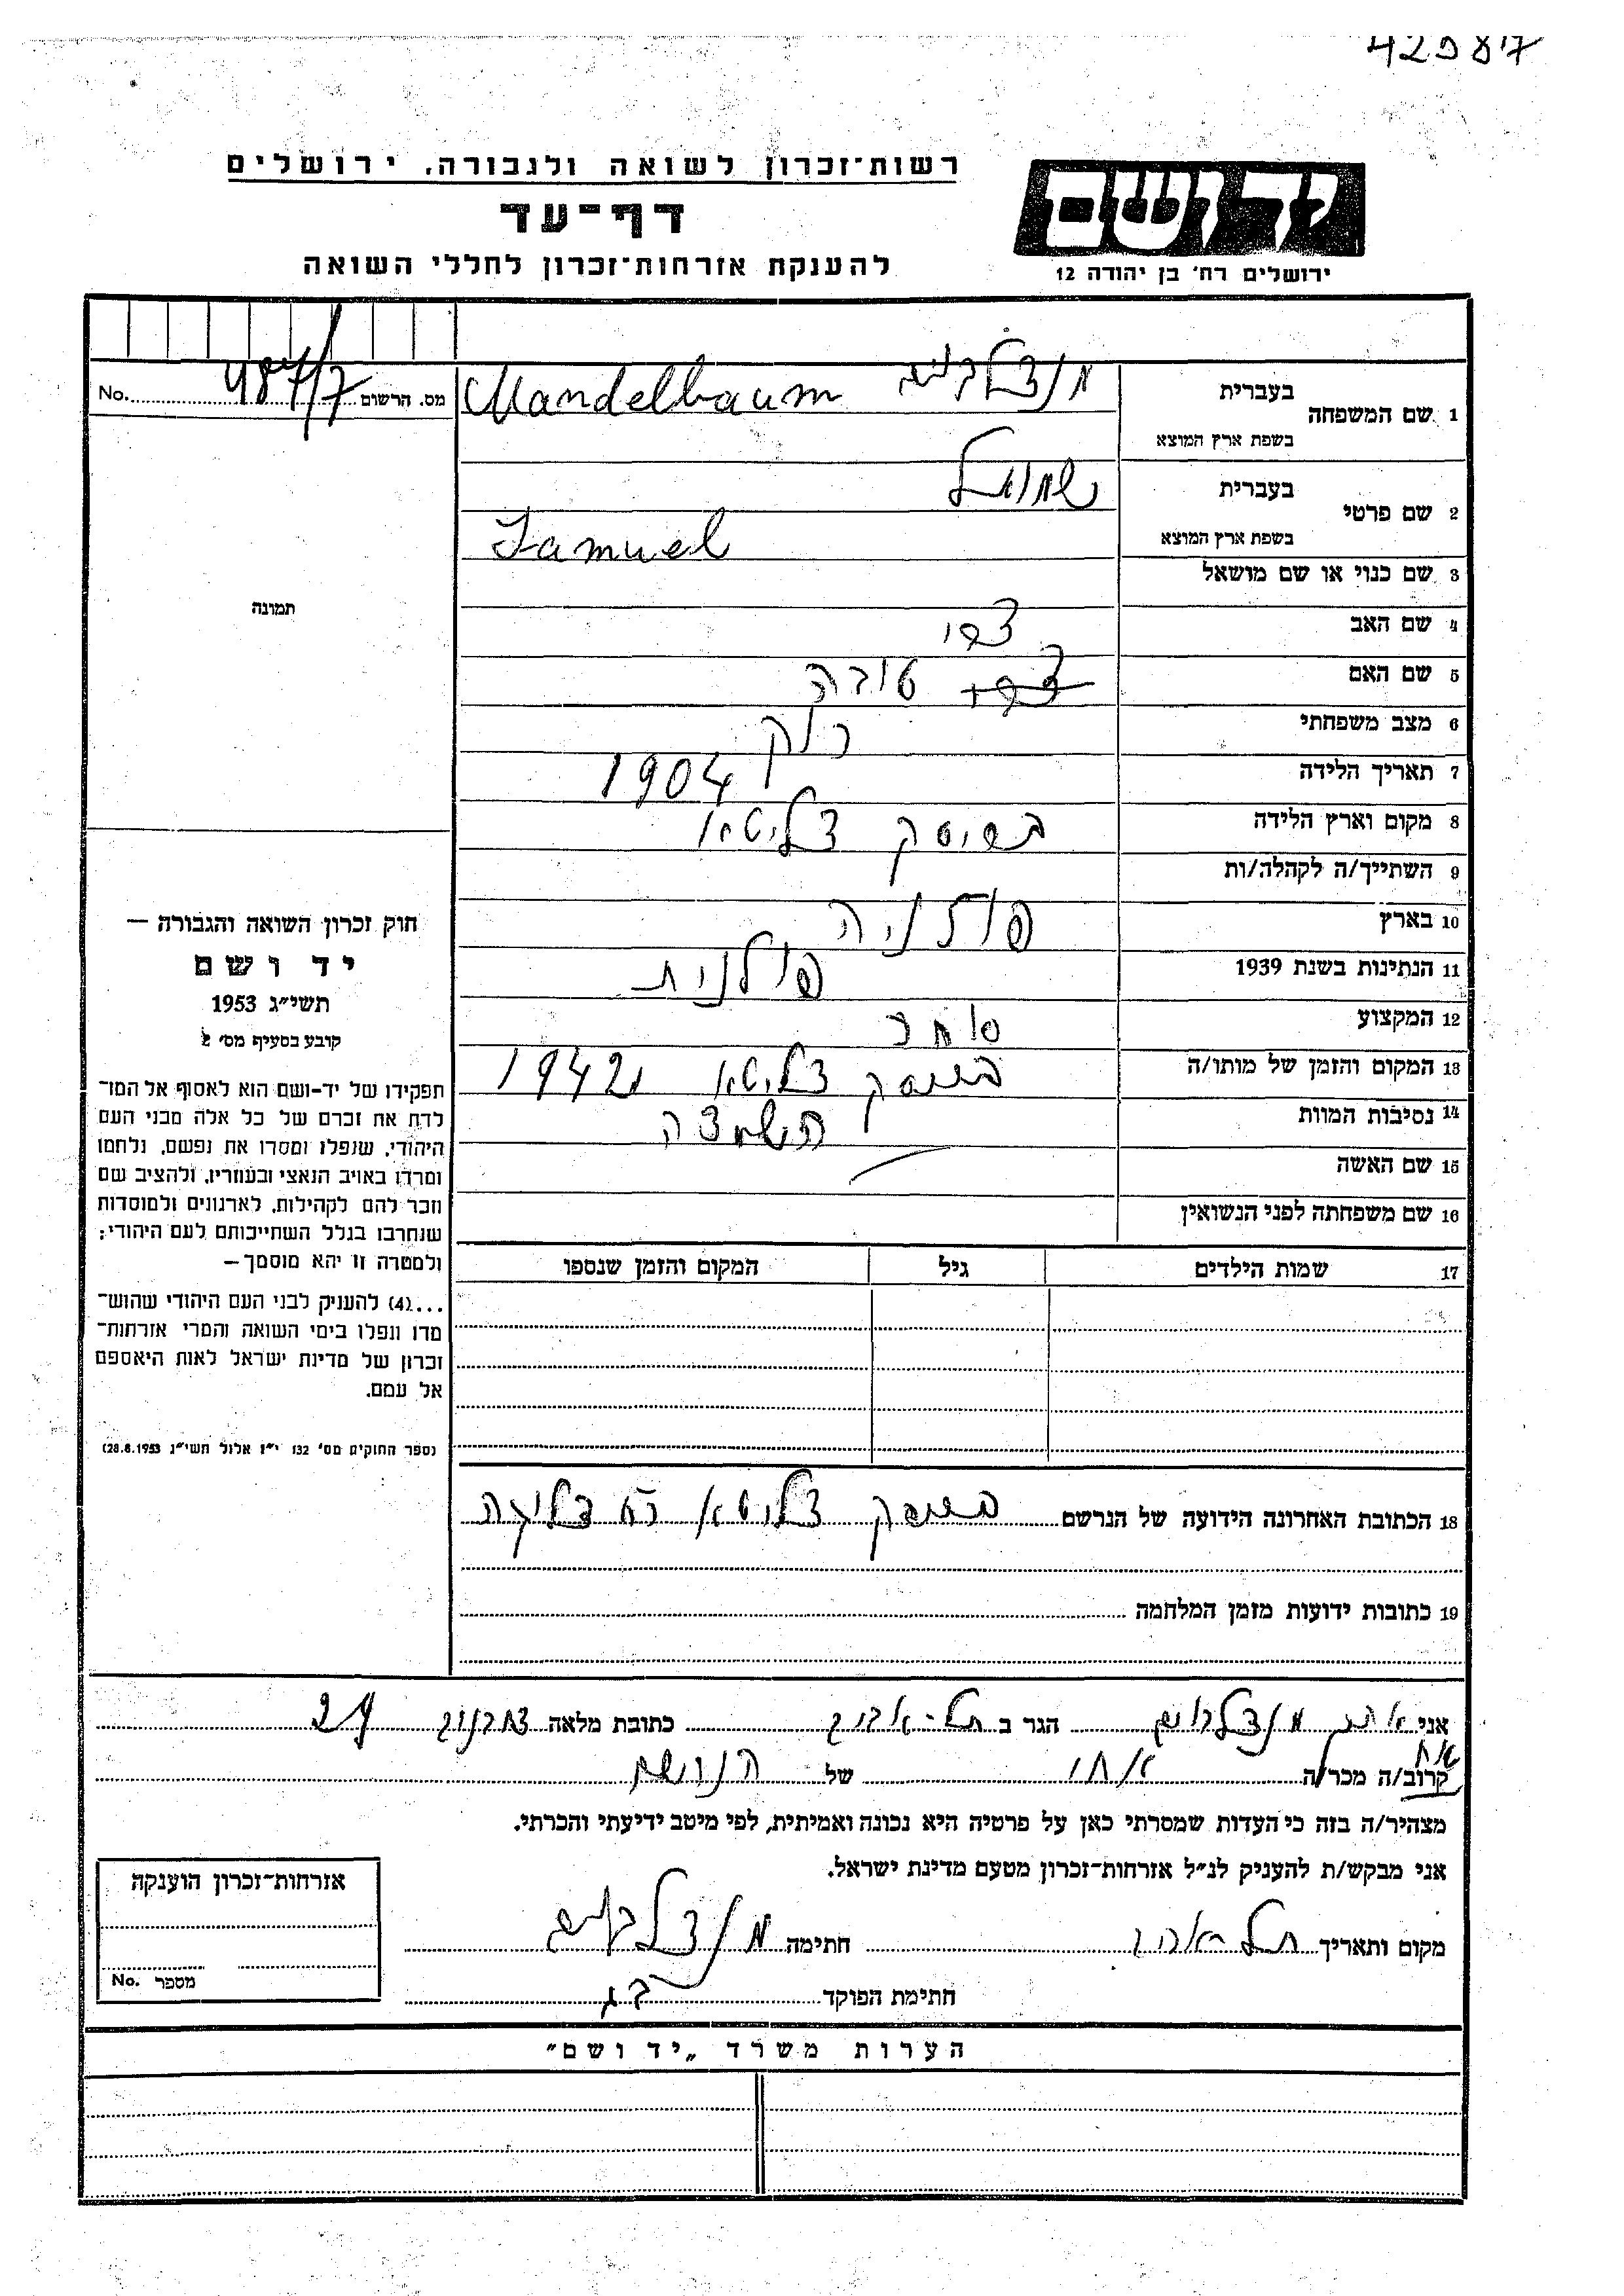 רשות־זכרון לשואה ולגבורה, ירושלים
דף־עד
להענקת אזרחות־זכרון לחללי השואה
יד ושם
ירושלים רח׳ בן יהודה 12
מס. הרשום No.
1 שם המשפחה
בעברית מנדלבוים
בשפת ארץ המוצא Mandelbaum
2 שם פרטי
בעברית שמואל
בשפת ארץ המוצא Samuel
3 שם כנוי או שם מושאל
4 שם האב צבי
5 שם האם צבי טובה
6 מצב משפחתי רוק
7 תאריך הלידה 1904
8 מקום וארץ הלידה בוסק דליטא
9 השתייך/ה לקהלה/ות
10 בארץ פולניה
11 הנתינות בשנת 1939 פולנית
12 המקצוע סוחר
13 המקום והזמן של מותו/ה דליטא 1942
14 נסיבות המוות השמדה
15 שם האשה
16 שם משפחתה לפני הנשואין
17 שמות הילדים גיל המקום והזמן שנספו
18 הכתובת האחרונה הידועה של הנרשם דליטא רח
19 כתובות ידועות מזמן המלחמה
תמונה
חוק זכרון השואה והגבורה —
יד ושם
תשי״ג 1953
קובע בסעיף מס׳ 2
תפקידו של יד-ושם הוא לאסוף אל המו־
לדת את זכרם של כל אלה מבני העם
היהודי, שנפלו ומסרו את נפשם, נלחמו
ומרדו באויב הנאצי ובעוזריו, ולהציב שם
וזכר להם לקהילות, לארגונים ולמוסדות
שנחרבו בגלל השתייכותם לעם היהודי;
ולמטרה זו יהא מוסמך —
...(4) להעניק לבני העם היהודי שהוש־
מדו ונפלו בימי השואה והמרי אזרחות־
זכרון של מדינת ישראל לאות היאספם
אל עמם.
(ספר החוקים מס׳ 132 י״ז אלול תשי״ג 28.8.1953)
אני מנדלבוים הגר ב תל-אביב כתובת מלאה
קרוב/ה מכר/ה אחי של הנרשם
מצהיר/ה בזה כי העדות שמסרתי כאן על פרטיה היא נכונה ואמיתית, לפי מיטב ידיעתי והכרתי.
אני מבקש/ת להעניק לנ״ל אזרחות־זכרון מטעם מדינת ישראל.
מקום ותאריך תל-אביב חתימה מנדלבוים
חתימת הפוקד
אזרחות־זכרון הוענקה
מספר No.
הערות משרד „יד ושם״